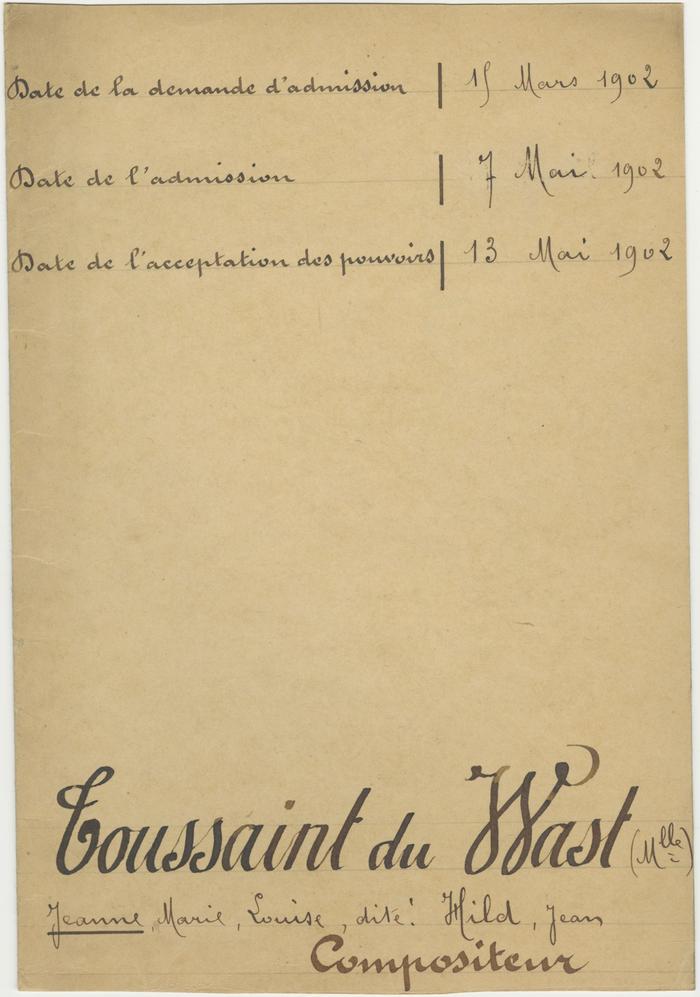 Date de la demande d'admission | 15 Mars 1902
Date de l'admission | 7 Mai 1902
Date de l'acceptation des pouvoirs | 13 Mai 1902
Toussaint du Wast (Mlle)
Jeanne, Marie, Louise, dite: Hild, Jean
Compositeur